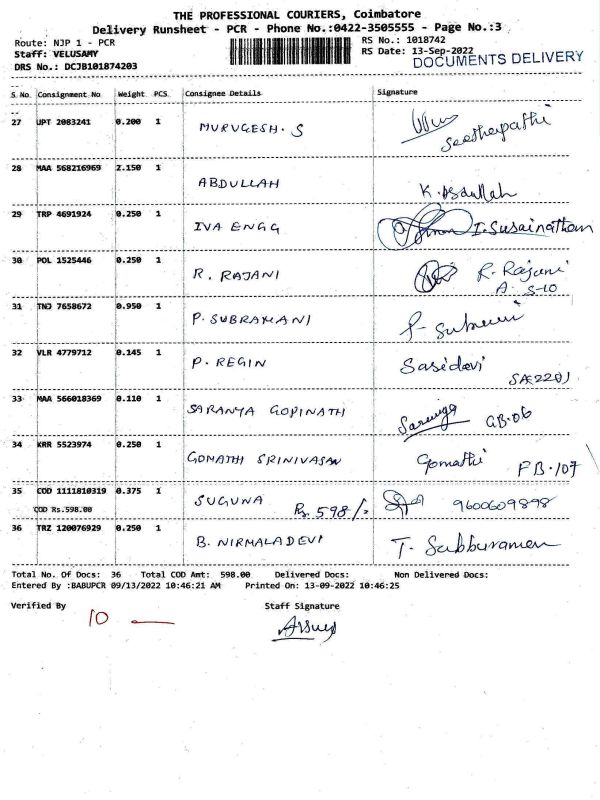 THE PROFESSIONAL COURIERS, Coimbatore
Delivery Runsheet - PCR - Phone No.:0422-3505555 - Page No.:3
Route: NJP 1 - PCR RS No.: 1018742
Staff: VELUSAMY RS Date: 13-Sep-2022
DRS No.: DCJB101874203 DOCUMENTS DELIVERY
S.No. Consignment No Weight PCS Consignee Details Signature
27 UPT 2083241 0.200 1 MURUGESH. S Seethapathi
28 MAA 568216969 2.150 1 ABDULLAH K. Abdullah
29 TRP 4691924 0.250 1 IVA ENGG I. Susainathan
30 POL 1525446 0.250 1 R. RAJANI R. Rajani
A S-10
31 TNJ 7658672 0.950 1 P. SUBRAMANI
32 VLR 4779712 0.145 1 P. REGIN Sasidevi
33 MAA 566018369 0.110 1 SARANYA GOPINATH GB-06
34 KRR 5523974 0.250 1 GOMATHI SRINIVASAN Gomathi FB-107
35 COD 1111810319 0.375 1 SUGUNA Rs. 598/- 9600609898
COD Rs.598.00
36 TRZ 120076929 0.250 1 B. NIRMALADEVI T. Subburaman
Total No. Of Docs: 36 Total COD Amt: 598.00 Delivered Docs: Non Delivered Docs:
Entered By :BABUPCR 09/13/2022 10:46:21 AM Printed On: 13-09-2022 10:46:25
Verified By Staff Signature
10 —